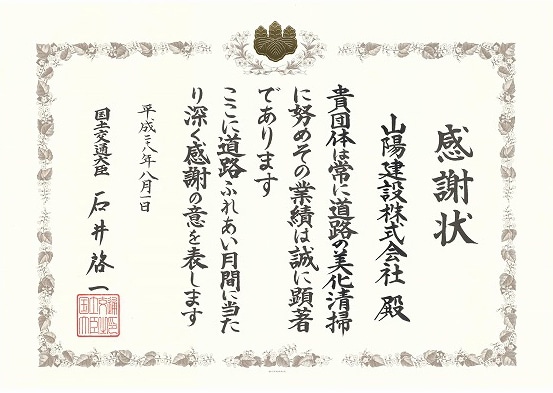 感謝状
山陽建設株式会社 殿
貴団体は常に道路の美化清掃
に努めその業績は誠に顕著
であります
ここに道路ふれあい月間に当た
り深く感謝の意を表します
平成二十八年八月一日
国土交通大臣 石井啓一
国土交通大臣之印